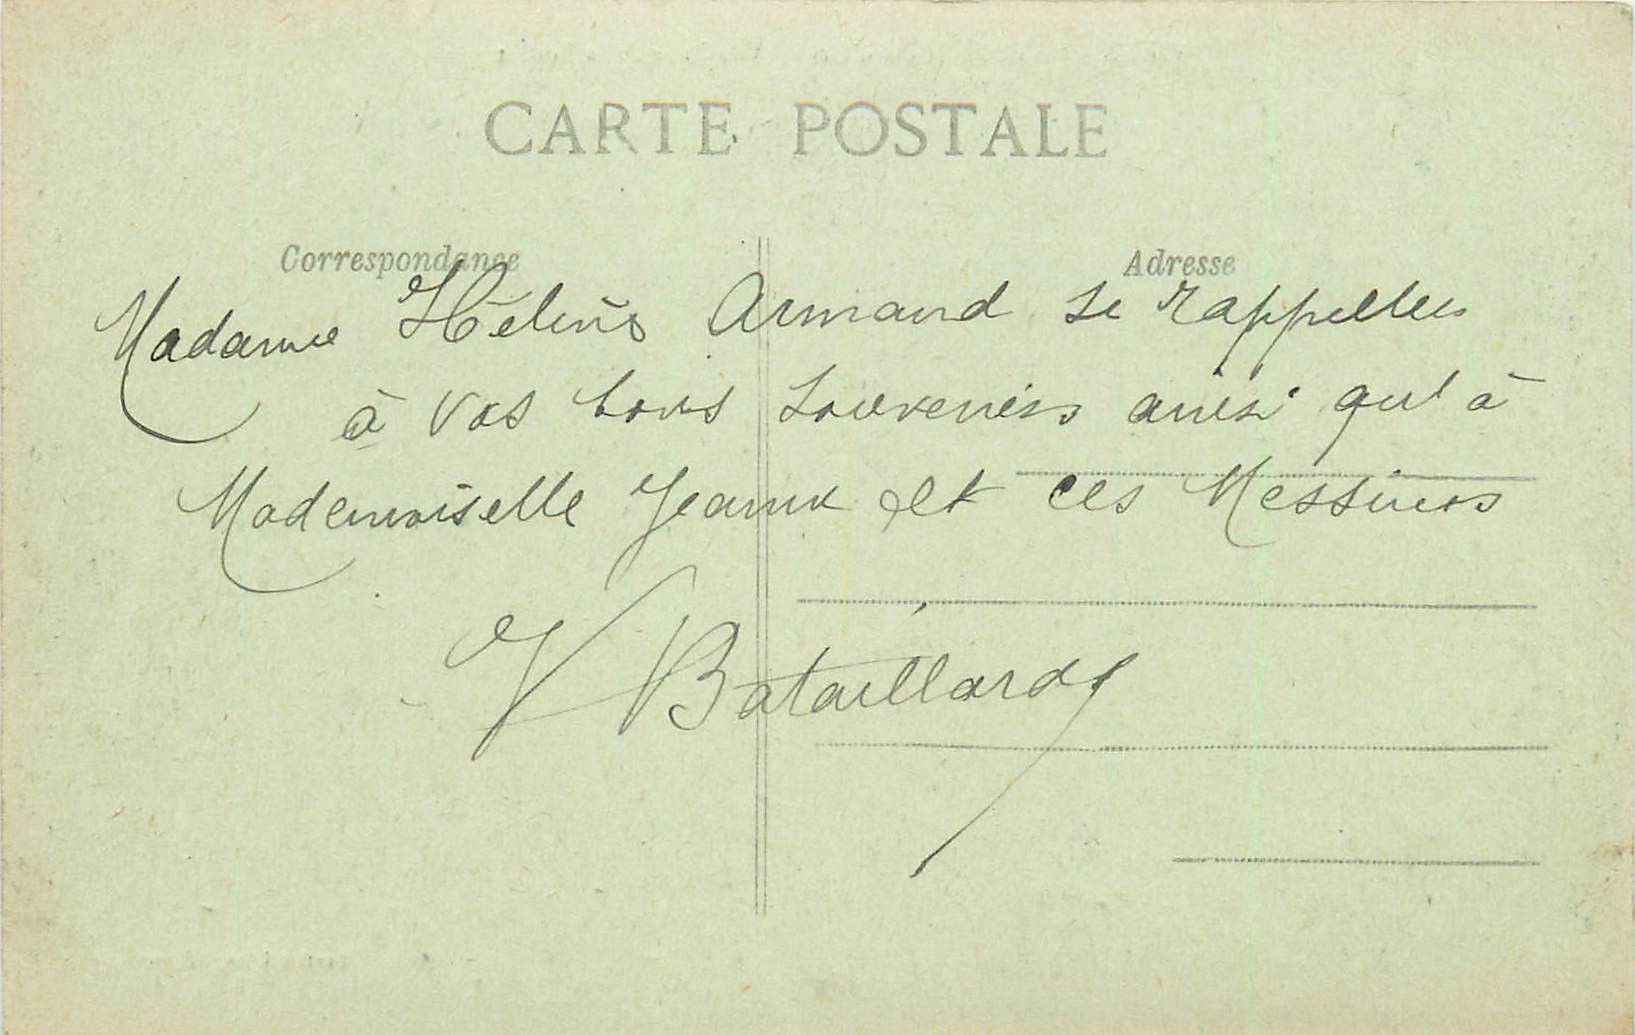 CARTE POSTALE
Correspondance
Adresse
Madame Hélène Armand se rappelle
à vos bons souvenirs ainsi qu'à
Mademoiselle Jeanne et ces Messieurs
V Bataillard